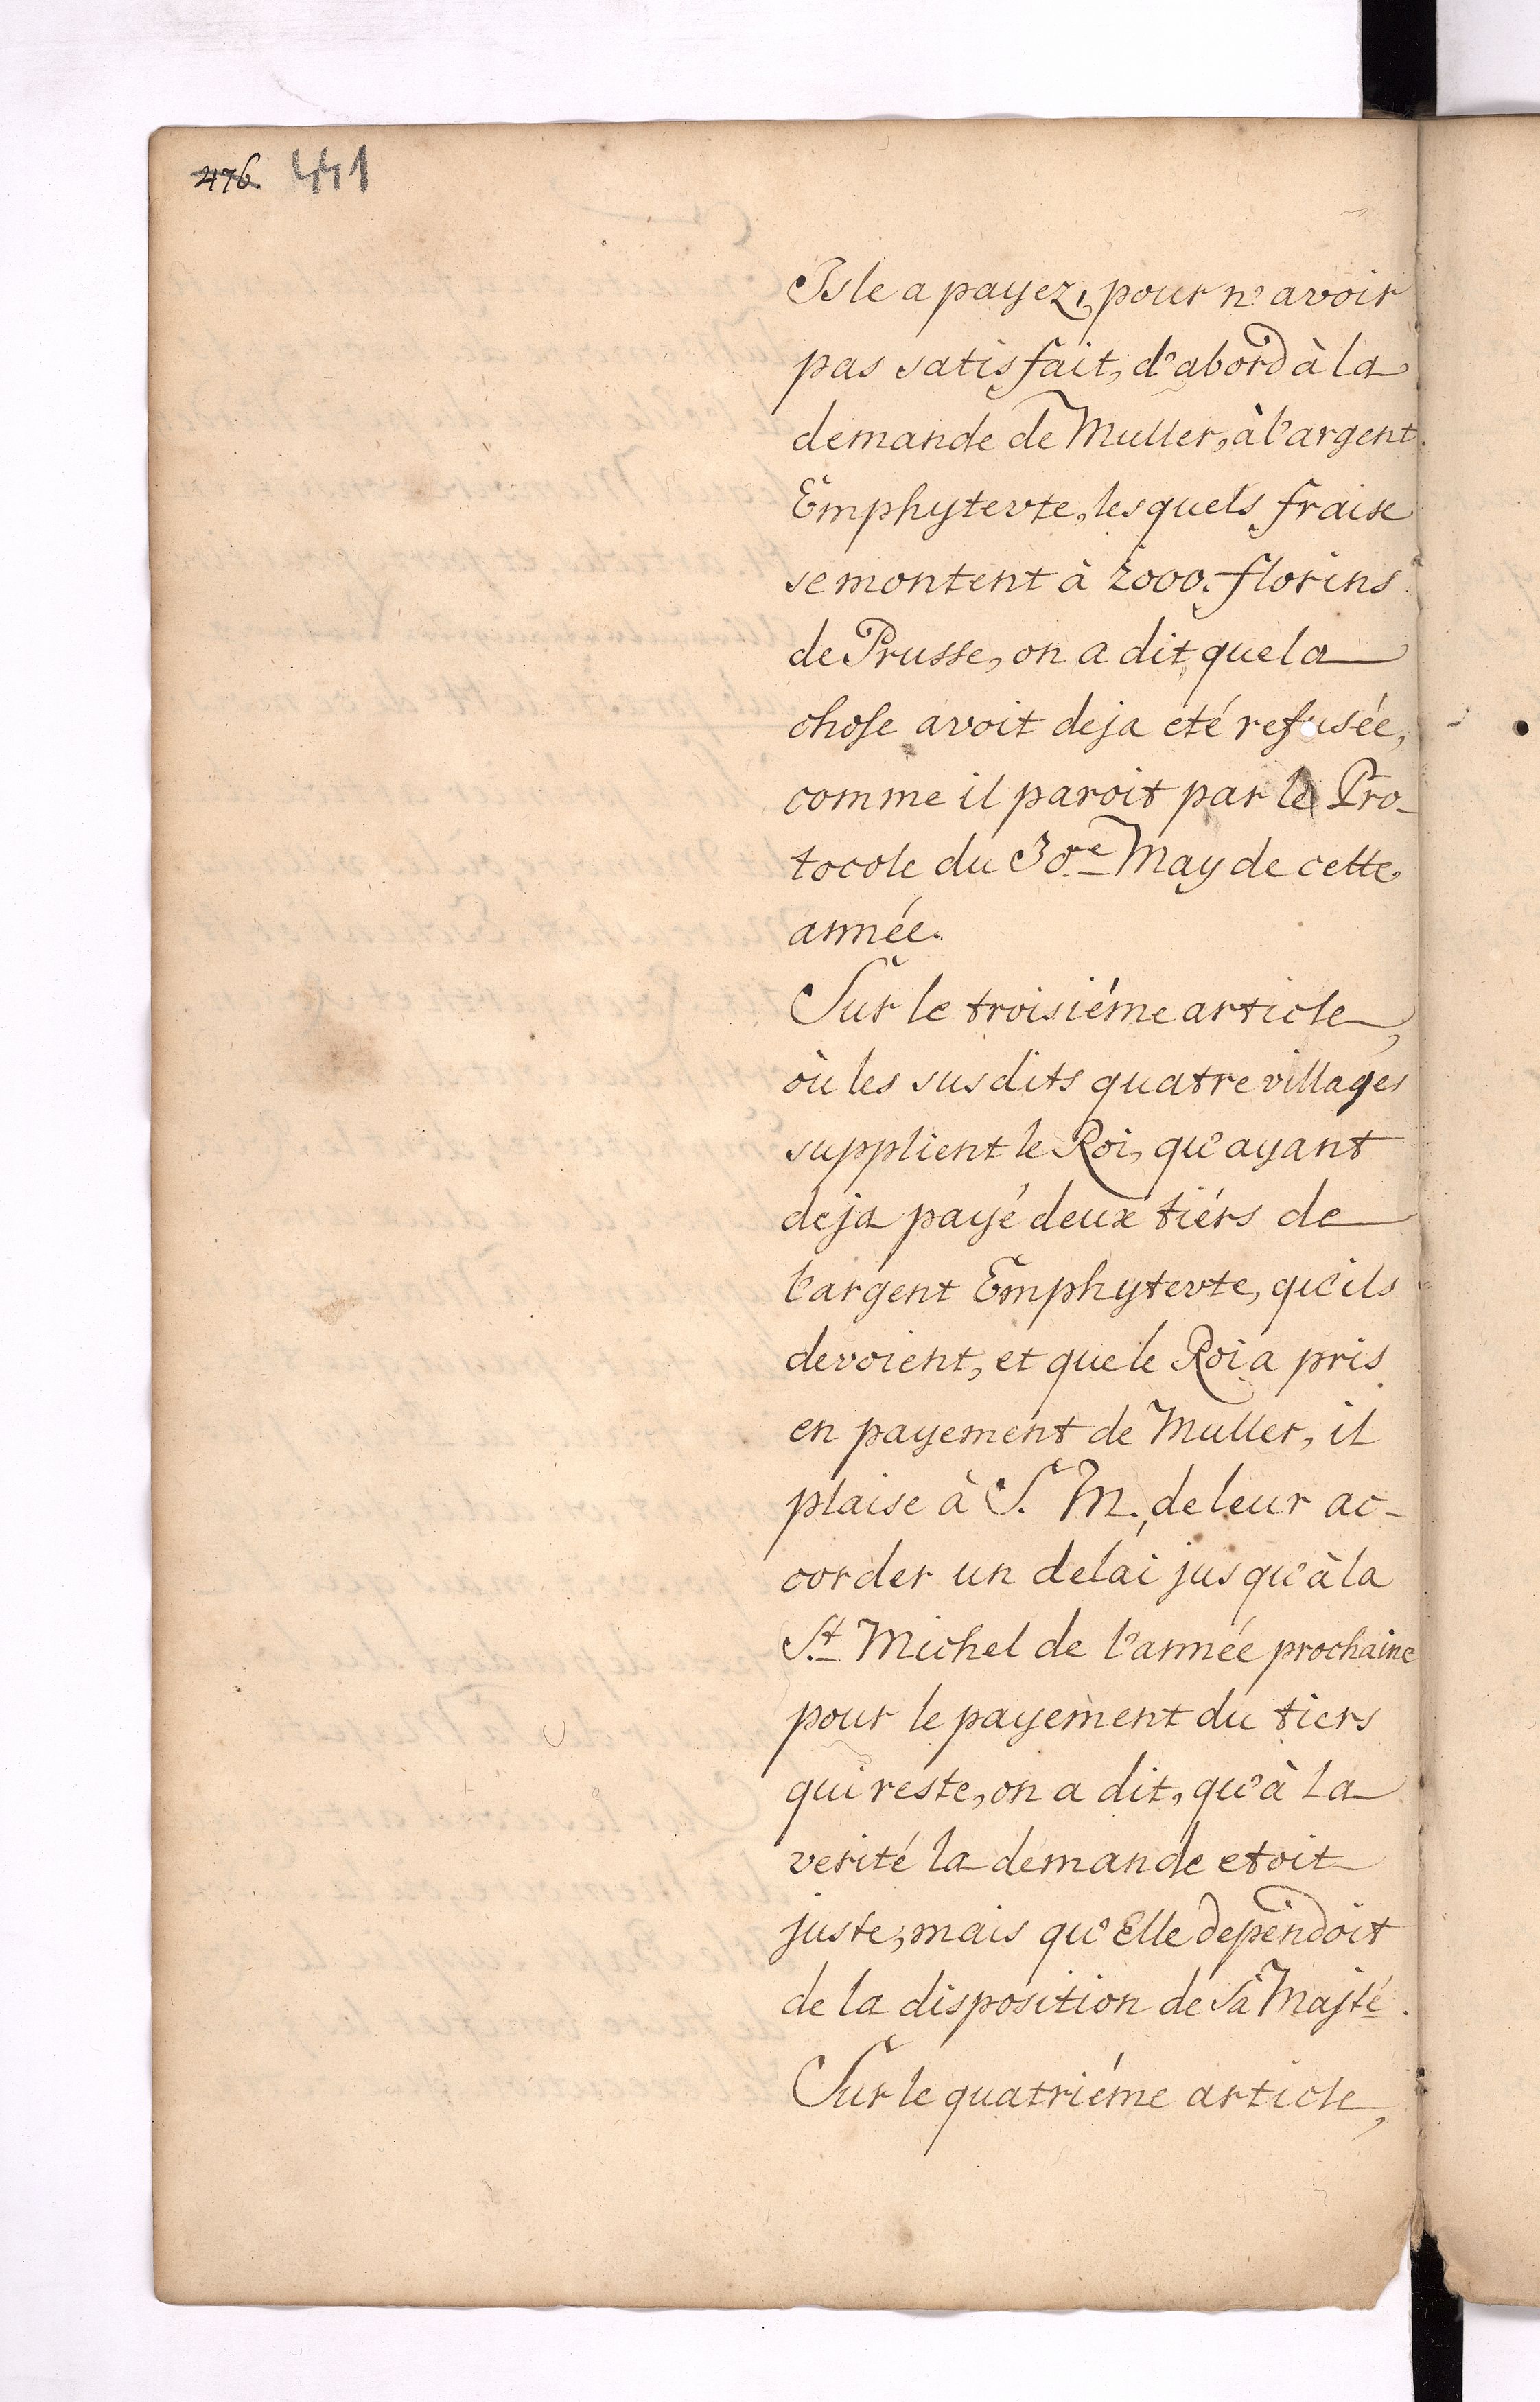 476. 441
Isle a payez, pour n'avoir
pas satisfait, d'abord à la
demande de Muller, à l'argent
Emphytevte, lesquels fraise
se montent à 2000. florins
de Prusse, on a dit, que la
chose avoit deja eté refusée,
comme il paroit par le Pro-
tocole du 30.e May de cette
année.
Sur le troisiéme article,
où les susdits quatre villages
supplient le Roi, qu'ayant
deja payé deux tiérs de
l'argent Emphytevte, qu'ils
devoient, et que le Roi a pris
en payement de Muller, il
plaise à S. M., de leur ac-
corder un delai jusqu'à la
St. Michel de l'année prochaine
pour le payement du tiers
qui reste, on a dit, qu'à la
verité la demande etoit
juste, mais qu'Elle dependoit
de la disposition de Sa Majté.
Sur le quatriéme article,